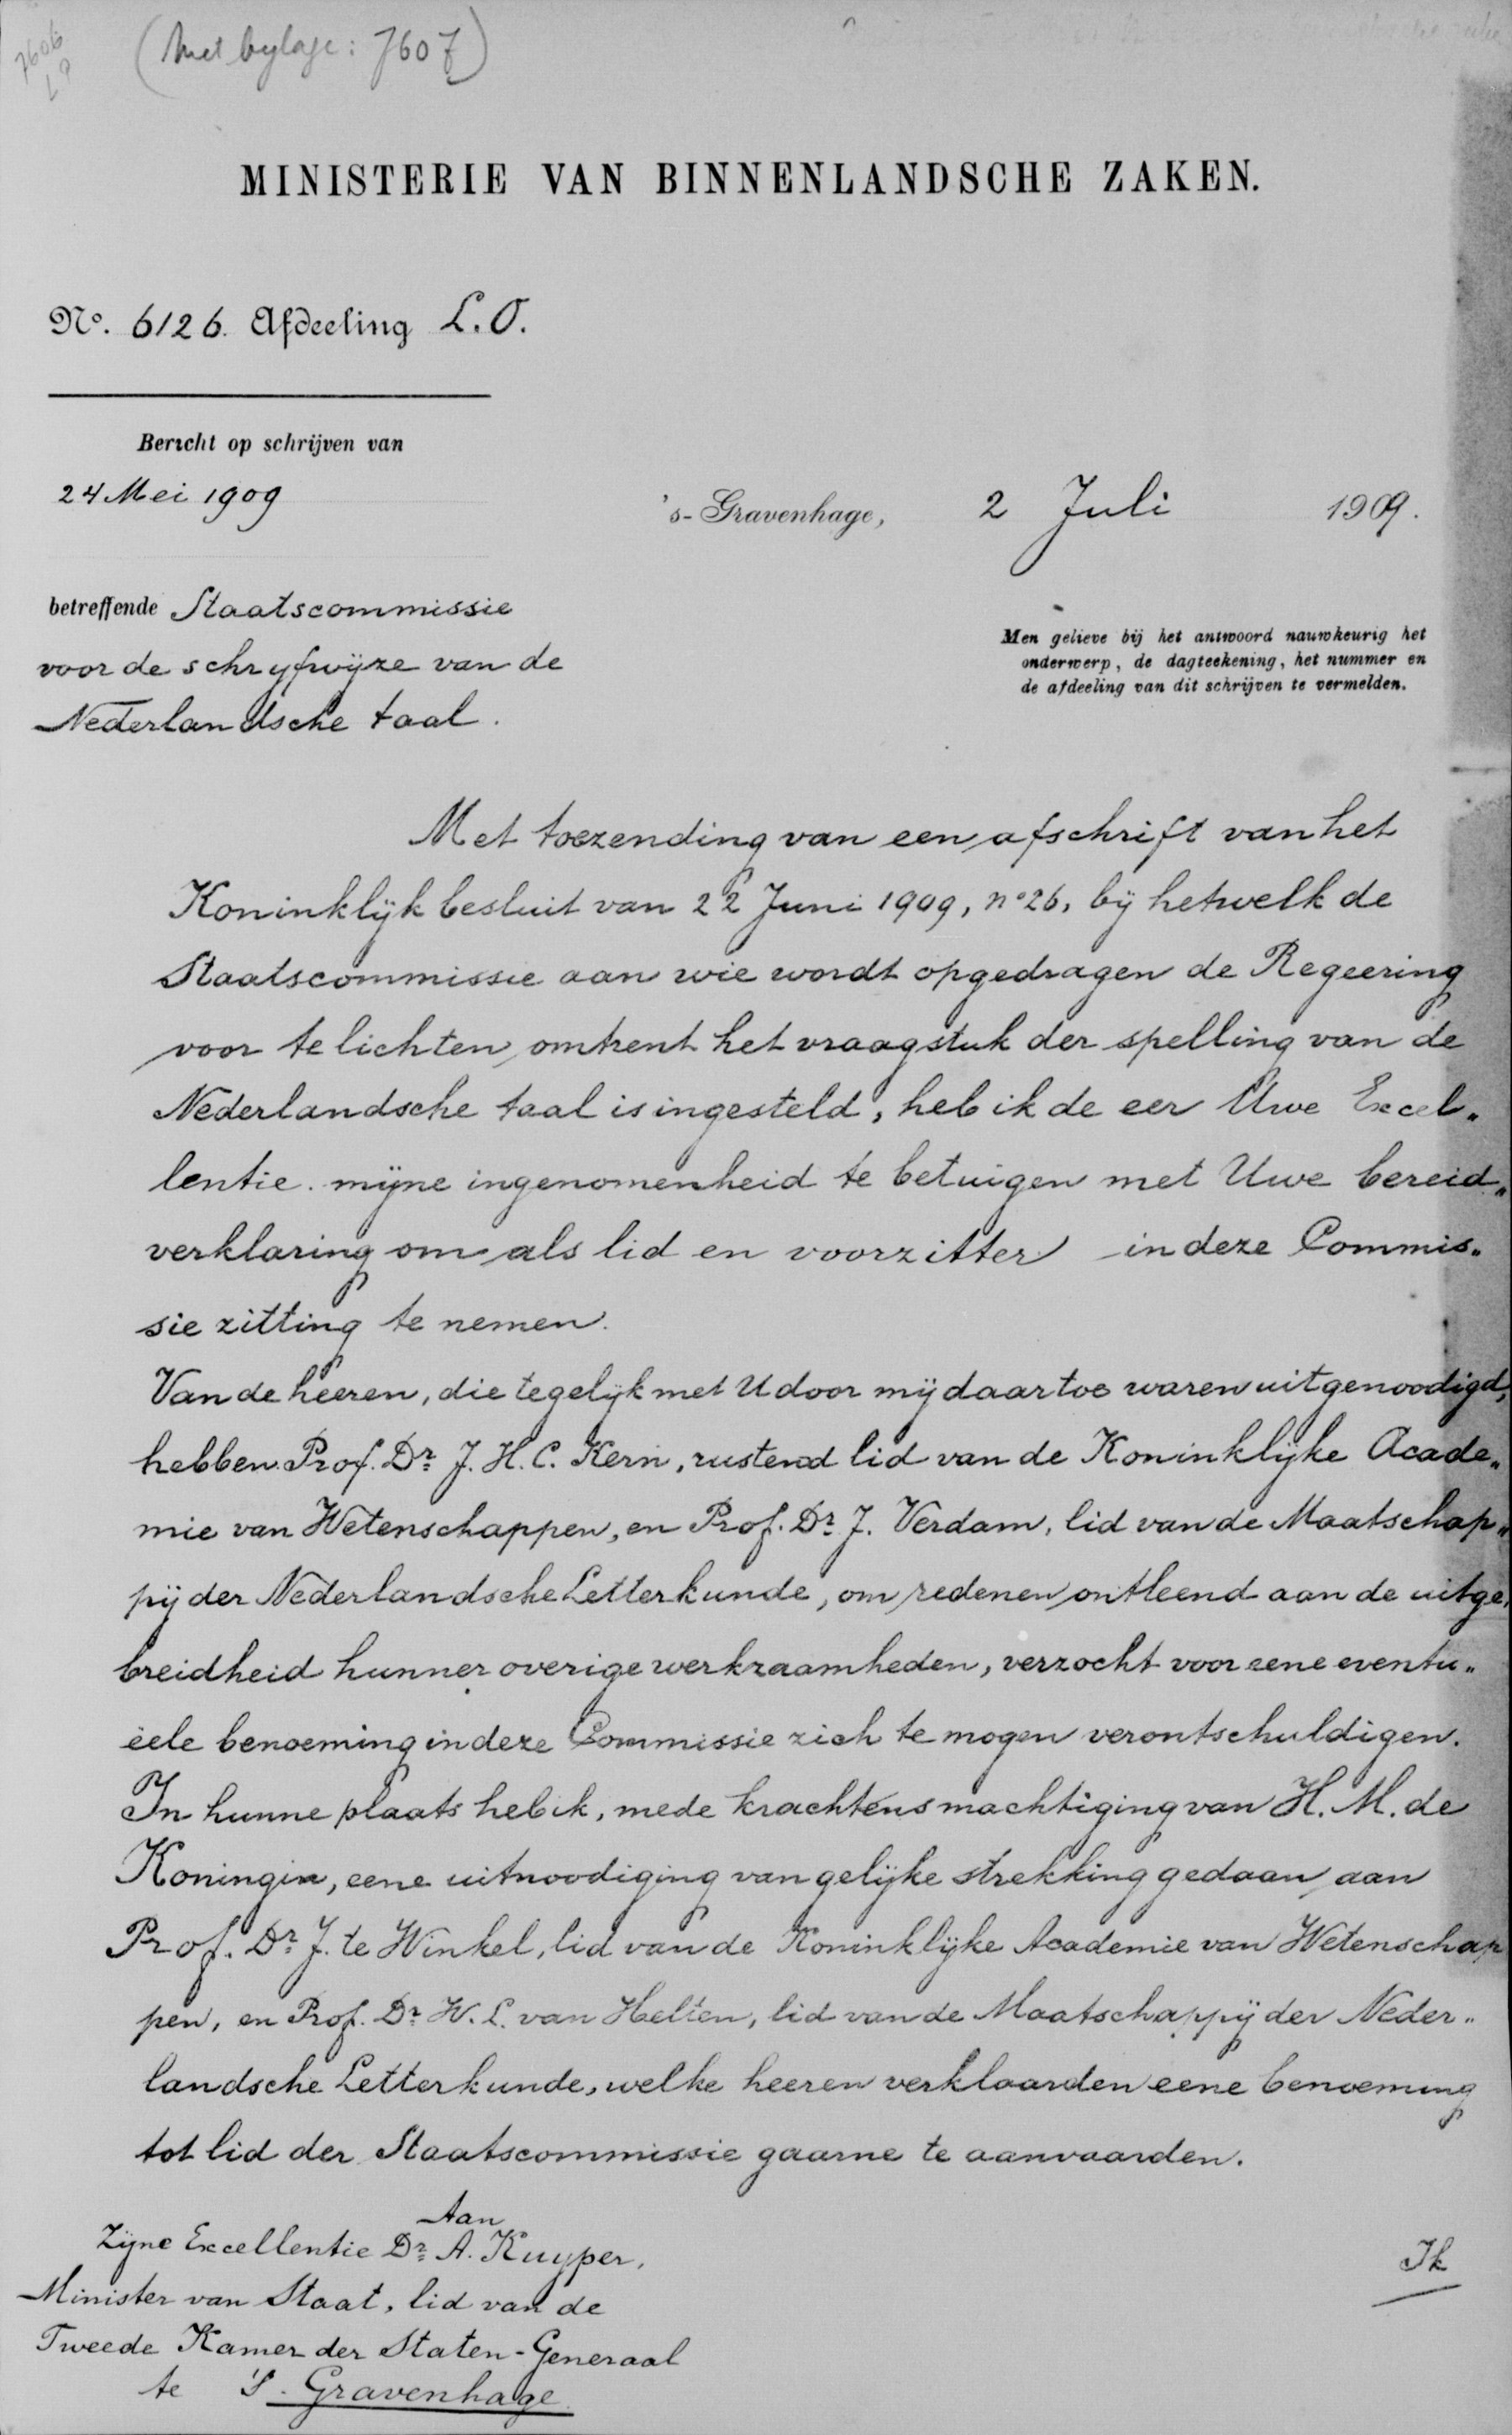 7606
(Met bylage: 7607)
MINISTERIE VAN BINNENLANDSCHE ZAKEN.
No. 6126. Afdeeling L.O.
Bericht op schrijven van
24 Mei 1909
's-Gravenhage, 2 Juli 1909.
betreffende Staatscommissie
voor de schryfwijze van de
Nederlandsche taal.
Men gelieve bij het antwoord nauwkeurig het
onderwerp, de dagteekening, het nummer en
de afdeeling van dit schrijven te vermelden.
Met toezending van een afschrift van het
Koninklijk besluit van 22 Juni 1909, no 26, bij hetwelk de
Staatscommissie aan wie wordt opgedragen de Regeering
voor te lichten omtrent het vraagstuk der spelling van de
Nederlandsche taal is ingesteld, heb ik de eer Uwe Excel„
lentie mijne ingenomenheid te betuigen met Uwe bereid„
verklaring om als lid en voorzitter in deze Commis„
sie zitting te nemen.
Van de heeren, die tegelijk met U door mij daartoe waren uitgenoodigd,
hebben Prof. Dr. J. H. C. Kern, rustend lid van de Koninklijke Acade„
mie van Wetenschappen, en Prof. Dr. J. Verdam, lid van de Maatschap„
pij der Nederlandsche Letterkunde, om redenen ontleend aan de uitge„
breidheid hunner overige werkzaamheden, verzocht voor eene eventu„
eele benoeming in deze Commissie zich te mogen verontschuldigen.
In hunne plaats heb ik, mede krachtens machtiging van H. M. de
Koningin, eene uitnoodiging van gelijke strekking gedaan aan
Prof. Dr. J. te Winkel, lid van de Koninklijke Academie van Wetenschap
pen, en Prof. Dr. W. L. van Helten, lid van de Maatschappij der Neder„
landsche Letterkunde, welke heeren verklaarden eene benoeming
tot lid der Staatscommissie gaarne te aanvaarden.
Aan
Zijne Excellentie Dr. A. Kuyper,
Minister van Staat, lid van de
Tweede Kamer der Staten-Generaal
te 'S-Gravenhage
Ik